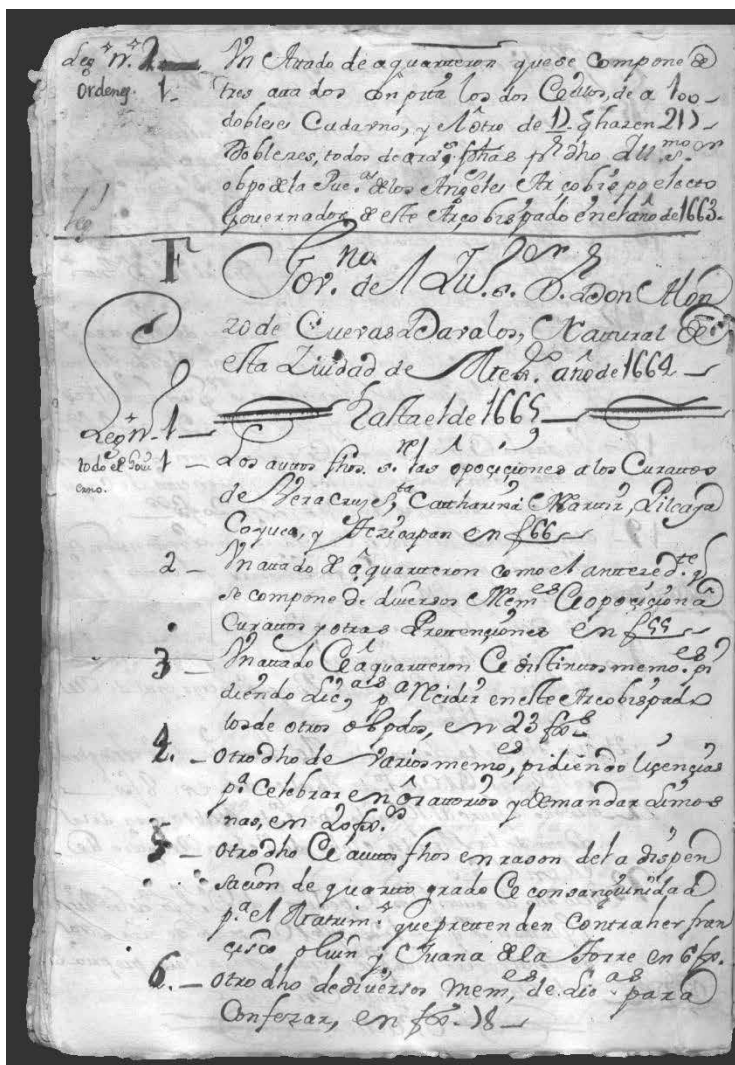 Leg.º N.º 2
Ordenes. 1 - Un Atado de aquarteron que se Compone de
tres atados con pita los dos de a 100
dobleses Cada vno, y el otro de 17. q hazen 217
Dobleses, todos de fhas pr dho Illmo Sor
obpo de la Pue.a de los Angeles Arçobispo electo
Governador de este Arçobispado en el año de 1663.
F
Gov.no del Illmo. s. D.r Don Alon
zo de Cuevas Davalos, Natural de
esta Ziudad de Mex.co año de 1664
hasta el de 1665
Leg.º N. 1
todo el Govi
erno.
1 - Los auttos fhos. s.re las opociciones a los Curattos
de Veracruz, S.ta Catharina Martir,
Coyuca, y en f 66
2 - Un atado de a quarteron como el antteced.te q
se compone de diversos Mem.es de opocicion a
Curattos y otras Prettenciones en f 55
3 - Un atado de a quarteron de distintos memo.es pi
diendo Lic.as p.a Recidir en este Arcobispado
los de otros obpdos, en 23 fxs
4. - Otro dho de Varios memo.es, pidiendo Licencias
p.a Celebrar en oratorios y demandar Limos
nas, en 20 fxs.
5 - otro dho de auttos fhos en rason de la dispen
sacion de quartto grado de consanguinidad
p.a el Matrim.o que prettenden Contraher fran
cisco olvin y Juana de la Torre en 6 fxs.
6. - otro dho de diversos Mem.es, de Lic.as para
Confezar, en fxs. 18